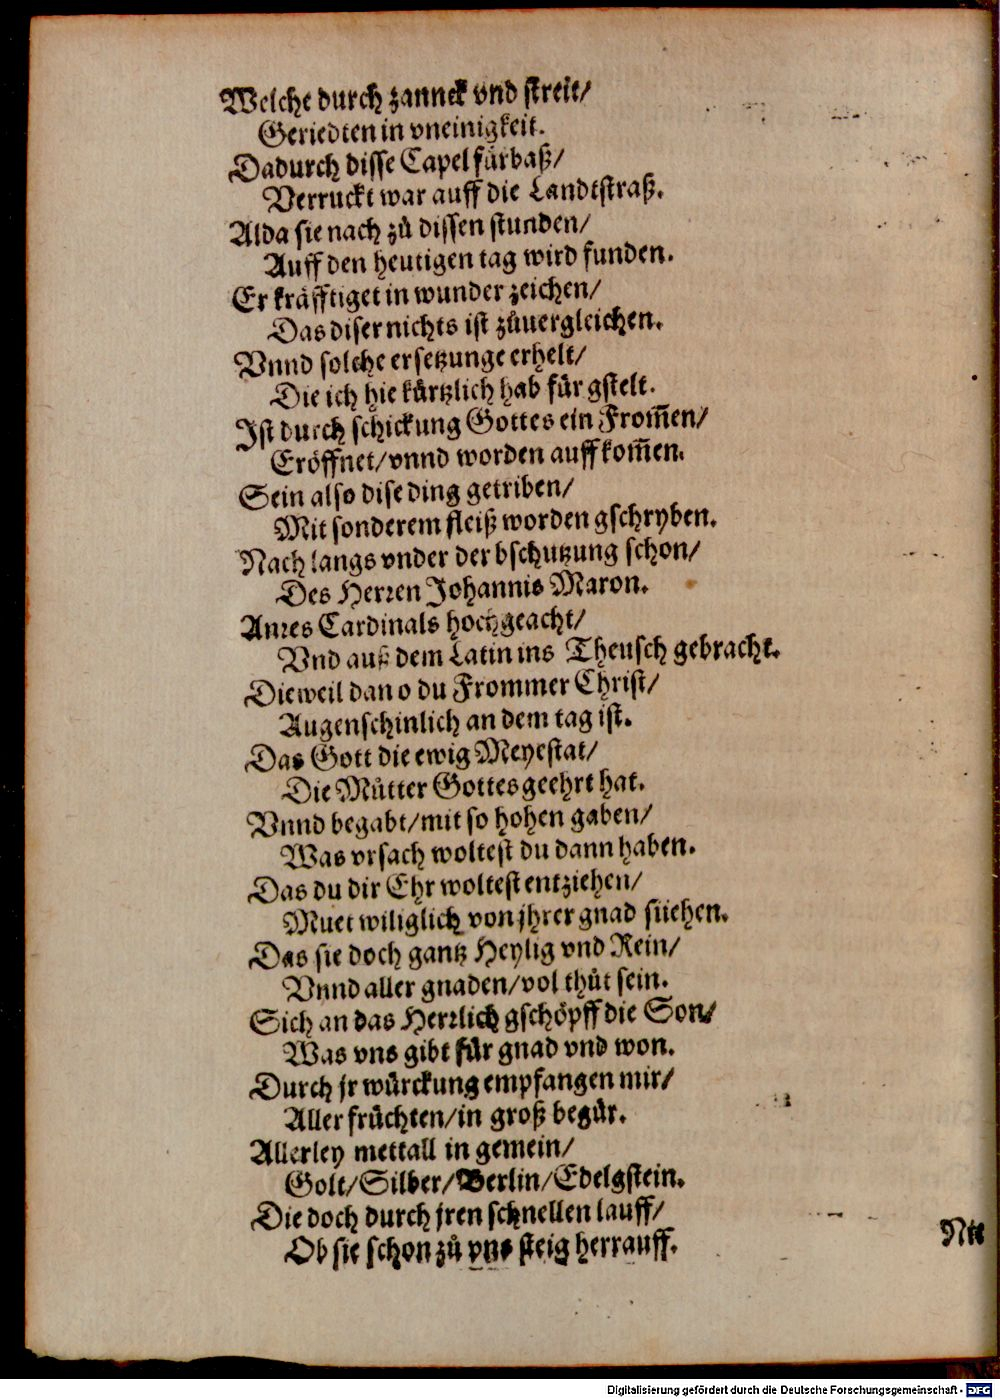 Welche durch zannck vnd streit/
Geriedten in vneinigkeit.
Dadurch disse Capel fürbaß/
Verruckt war auff die Landtstraß.
Alda sie nach zů dissen stunden/
Auff den heutigen tag wird funden.
Er kräfftiget in wunder zeichen/
Das diser nichts ist zůuergleichen.
Vnnd solche ersetzunge erhelt/
Die ich hie kürtzlich hab für gstelt.
Ist durch schickung Gottes ein From̄en/
Eröffnet/vnnd worden auff kom̄en.
Sein also dise ding getriben/
Mit sonderem fleiß worden gschryben.
Nach langs vnder der bschutzung schon/
Des Herren Johannis Maron.
Anres Cardinals hochgeacht/
Vnd auß dem Latin ins Theusch gebracht.
Dieweil dan o du Frommer Christ/
Augenschinlich an dem tag ist.
Das Gott die ewig Meyestat/
Die Můtter Gottes geehrt hat.
Vnnd begabt/mit so hohen gaben/
Was vrsach woltest du dann haben.
Das du dir Ehr woltest entziehen/
Muet wiliglich von jhrer gnad fliehen.
Das sie doch gantz Heylig vnd Rein/
Vnnd aller gnaden/vol thůt sein.
Sich an das Herrlich gschöpff die Son/
Was vns gibt für gnad vnd won.
Durch jr würckung empfangen mir/
Aller früchten/in groß begür.
Allerley mettall in gemein/
Golt/Silber/Berlin/Edelgstein.
Die doch durch jren schnellen lauff/
Ob sie schon zů vns steig herrauff.
Nit
Digitalisierung gefördert durch die Deutsche Forschungsgemeinschaft - DFG